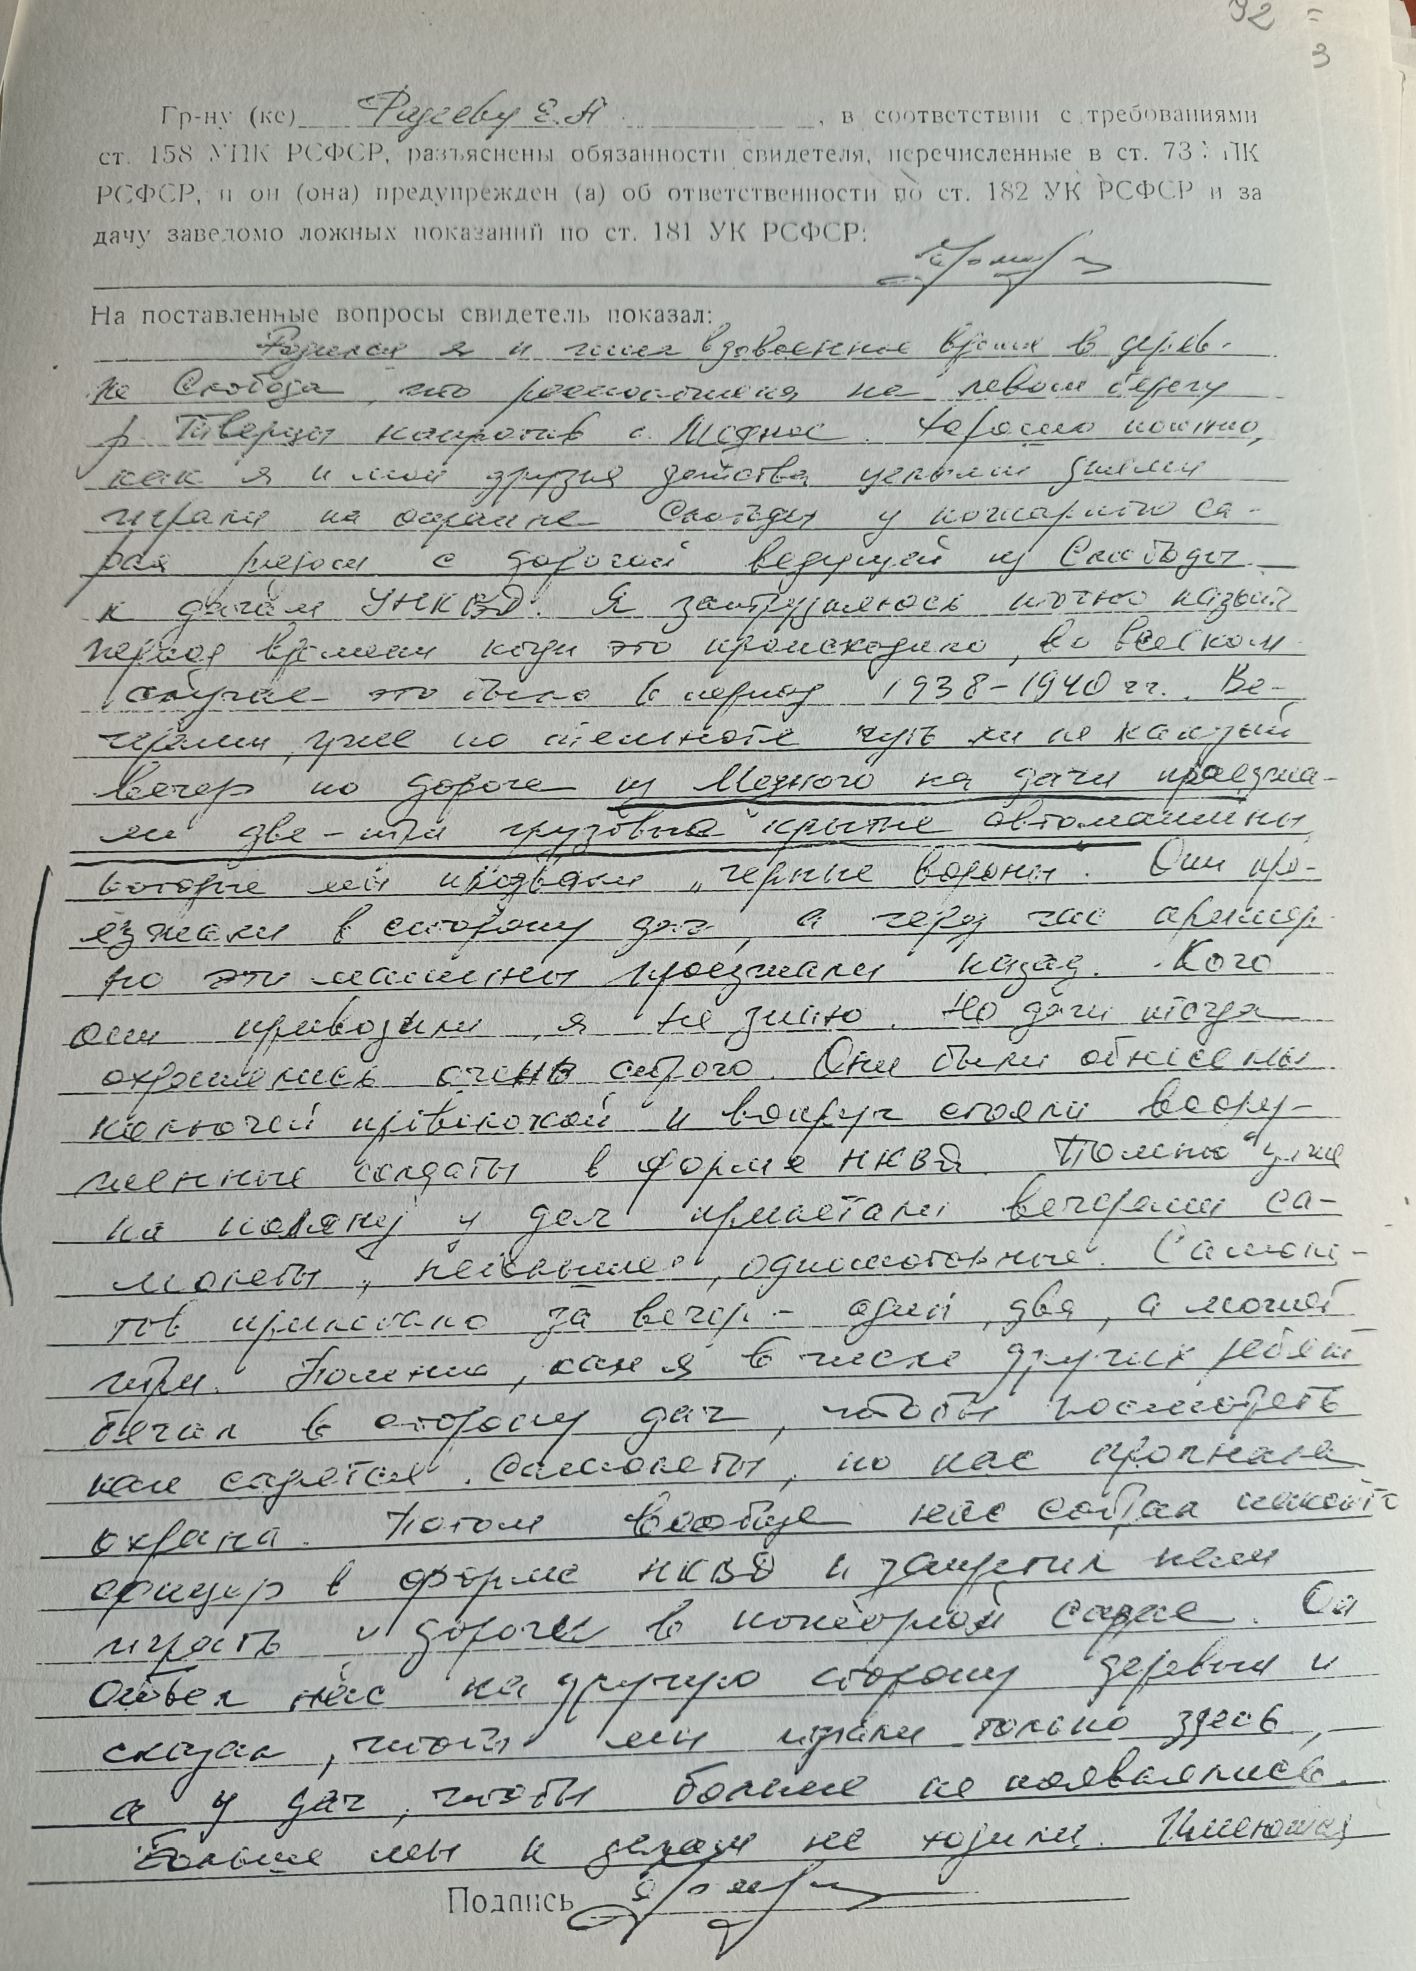 92
3
Гр-ну (ке) Фадееву Е.А., в соответствии с требованиями
ст. 158 УПК РСФСР, разъяснены обязанности свидетеля, перечисленные в ст. 73 УПК
РСФСР, и он (она) предупрежден (а) об ответственности по ст. 182 УК РСФСР и за
дачу заведомо ложных показаний по ст. 181 УК РСФСР:
На поставленные вопросы свидетель показал:
Родился я и жил в довоенное время в дерев-
не Слобода, что расположена на левом берегу
р. Тверцы напротив с. Медное. Хорошо помню,
как я и мои друзья детства целыми днями
играли на окраине Слободы у пожарного са-
рая рядом с дорогой ведущей из Слободы
к дачам УНКВД. Я затрудняюсь точно назвать
период времени когда это происходило, во всяком
случае это было в период 1938-1940 гг. Ве-
черами, уже по темноте чуть ли не каждый
вечер по дороге из Медного на дачи проезжа-
ли две-три грузовые крытые автомашины,
которые мы прозвали „черные вороны". Они про-
езжали в сторону дач, а через час пример-
но эти машины проезжали назад. Кого
они привозили я не знаю. Но дачи тогда
охранялись очень строго. Они были обнесены
колючей проволокой и вокруг стояли воору-
женные солдаты в форме НКВД. Помню уже
на поляну у дач прилетали вечерами са-
молеты, небольшие, одномоторные. Самоле-
тов прилетало за вечер - один, два, а может
три. Помню, как я в числе других ребят
бегал в сторону дач, чтобы посмотреть
как садятся самолеты, но нас прогнала
охрана. Потом вообще нас собрал какой-то
офицер в форме НКВД и запретил нам
играть у дороги в пожарном сарае. Он
отвел нас на другую сторону деревни и
сказал, чтобы мы играли только здесь,
а у дач, чтобы больше не появлялись.
Больше мы к дачам не ходили. Имеющая
Подпись